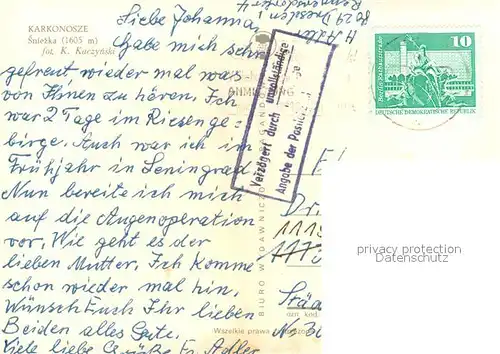 KARKONOSZE
Śnieżka (1605 m)
fot. K. Kaczyński
Liebe Johanna,
Habe mich sehr
gefreut wieder mal was
von Ihnen zu hören. Ich
war 2 Tage im Riesenge-
birge. Auch war ich im
Frühjahr in Leningrad.
Nun bereite ich mich
auf die Augenoperation
vor. Wie geht es der
lieben Mutter. Ich komme
schon wieder mal hin.
Wünsch Euch Ihr lieben
Beiden alles Gute.
Viele liebe Grüße Fr. Adler
Adler
8029 Dresden
Verzögert durch unvollständige
Angabe der Postleitzahl
BIURO WYDAWNICZO PROPAGANDOWE
Wszelkie prawa
10
DEUTSCHE DEMOKRATISCHE REPUBLIK
Dr.
privacy protection
Datenschutz